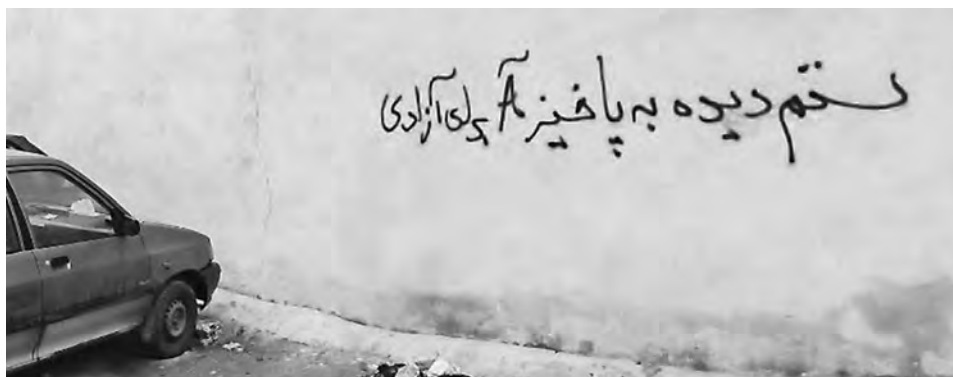 ستم دیده به پاخیز A برای آزادی